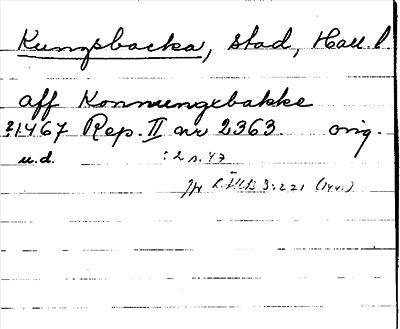 Kungsbacka, stad, Hall. l.
aff Konnungebakke
?1467 Rep. II nr 2363. orig.
u.d. : 2 s. 47
Jfr 3:221